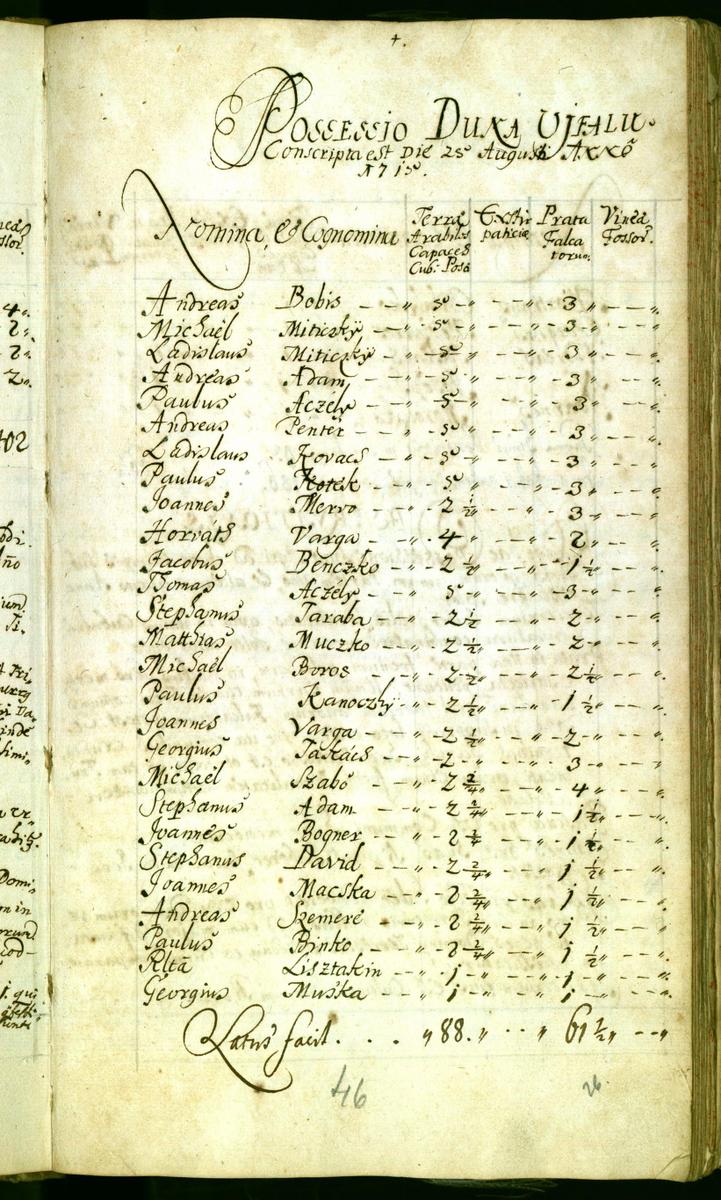 +.
Possessio Duna Ujfalu.
Conscripta est Die 25 Augusti Anno
1715.
Nomina, & Cognomina
Terræ Arabiles Capaces Cub: Pos:
Extirpaticiæ
Prata Falcatorum
Vineæ Fossor.
Andreas Bobis — — " 5 " — — " 3 " — — ".
Michaël Miticzky — " 5 " — — " 3 " — — ".
Ladislaus Miticzky — " 5 " — — " 3 " — — ".
Andreas Adam — — " 5 " — — " 3 " — — ".
Paulus Aczély — — " 5 " — — " 3 " — — ".
Andreas Pentér — — " 5 " — — " 3 " — — ".
Ladislaus Kovacs — — " 5 " — — " 3 " — — ".
Paulus — — " 5 " — — " 3 " — — ".
Joannes Mervo — — " 2 1/2 " — — " 3 " — — ".
Horváth Varga — — " 4 " — — " 2 " — — ".
Jacobus Benczko — " 2 1/2 " — — " 1 1/2 " — — ".
Thomas Aczély — — " 5 " — — " 3 " — — ".
Stephanus Taraba — — " 2 1/2 " — — " 2 " — — ".
Matthias Muczko — — " 2 1/2 " — — " 2 " — — ".
Michaël Boros — — " 2 1/2 " — — " 2 1/2 " — — ".
Paulus Kanoczky — " 2 1/2 " — — " 1 1/2 " — — ".
Joannes Varga — — " 2 1/2 " — — " 2 " — — ".
Georgius Takács — — " 2 " — — " 3 " — — ".
Michaël Szabó — — " 2 2/4 " — — " 4 " — — ".
Stephanus Adam — — " 2 2/4 " — — " 1 1/2 " — — ".
Joannes Bogner — — " 2 2/4 " — — " 1 1/2 " — — ".
Stephanus David — — " 2 2/4 " — — " 1 1/2 " — — ".
Joannes Macska — — " 2 2/4 " — — " 1 1/2 " — — ".
Andreas Szemere — — " 2 2/4 " — — " 1 1/2 " — — ".
Paulus Binko — — " 2 2/4 " — — " 1 1/2 " — — ".
Rlta Lisztakin — — " 1 " — — " 1 " — — ".
Georgius Muska — — " 1 " — — " 1 " — — ".
Latus facit . . . " 88. " . . " 61 1/2 " — — "
46
26